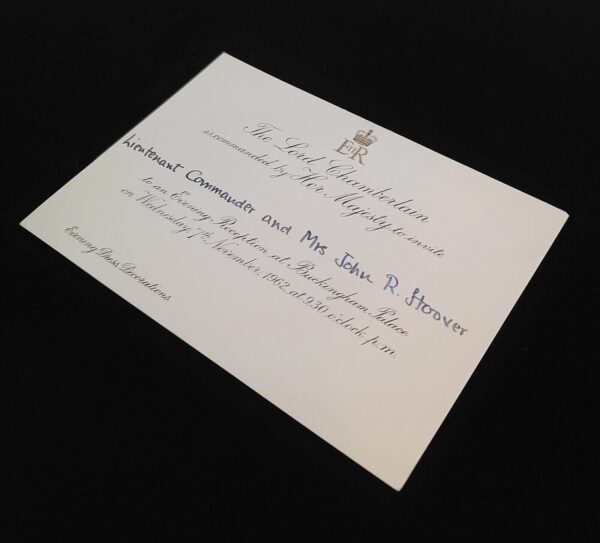 EIIR
The Lord Chamberlain
is commanded by Her Majesty to invite
Lieutenant Commander and Mrs John R. Hoover
to an Evening Reception at Buckingham Palace
on Wednesday, 7th November, 1962, at 9.30 o'clock p.m.
Evening Dress Decorations